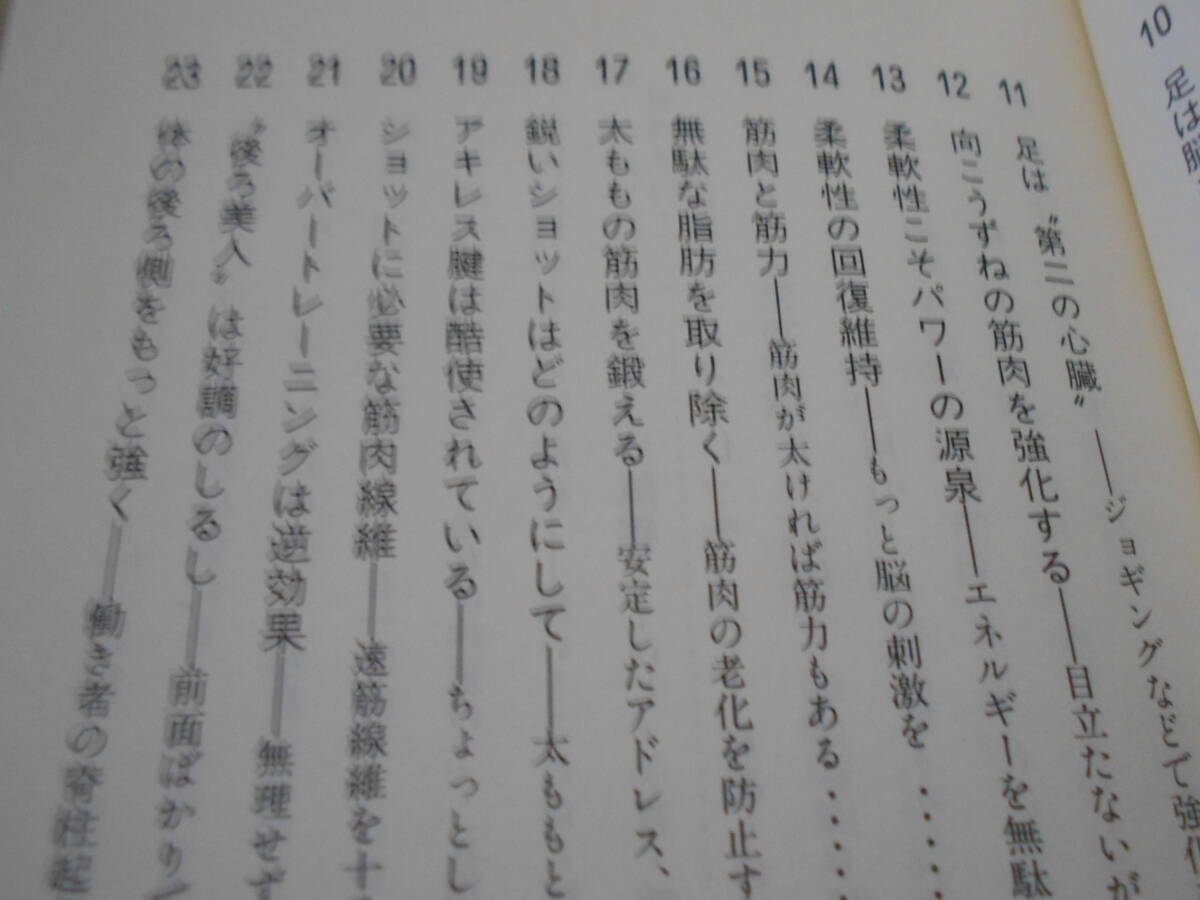 10 足は脳
11 足は〝第二の心臓〟——ジョギングなどで強化
12 向こうずねの筋肉を強化する——目立たないが
13 柔軟性こそパワーの源泉——エネルギーを無駄
14 柔軟性の回復維持——もっと脳の刺激を・・・・
15 筋肉と筋力——筋肉が太ければ筋力もある・・・・
16 無駄な脂肪を取り除く——筋肉の老化を防止す
17 太ももの筋肉を鍛える——安定したアドレス、
18 鋭いショットはどのようにして——太ももと
19 アキレス腱は酷使されている——ちょっとし
20 ショットに必要な筋肉線維——速筋線維を十
21 オーバートレーニングは逆効果——無理せず
22 〝後ろ美人〟は好調のしるし——前面ばかりで
23 体の後ろ側をもっと強く——働き者の脊柱起